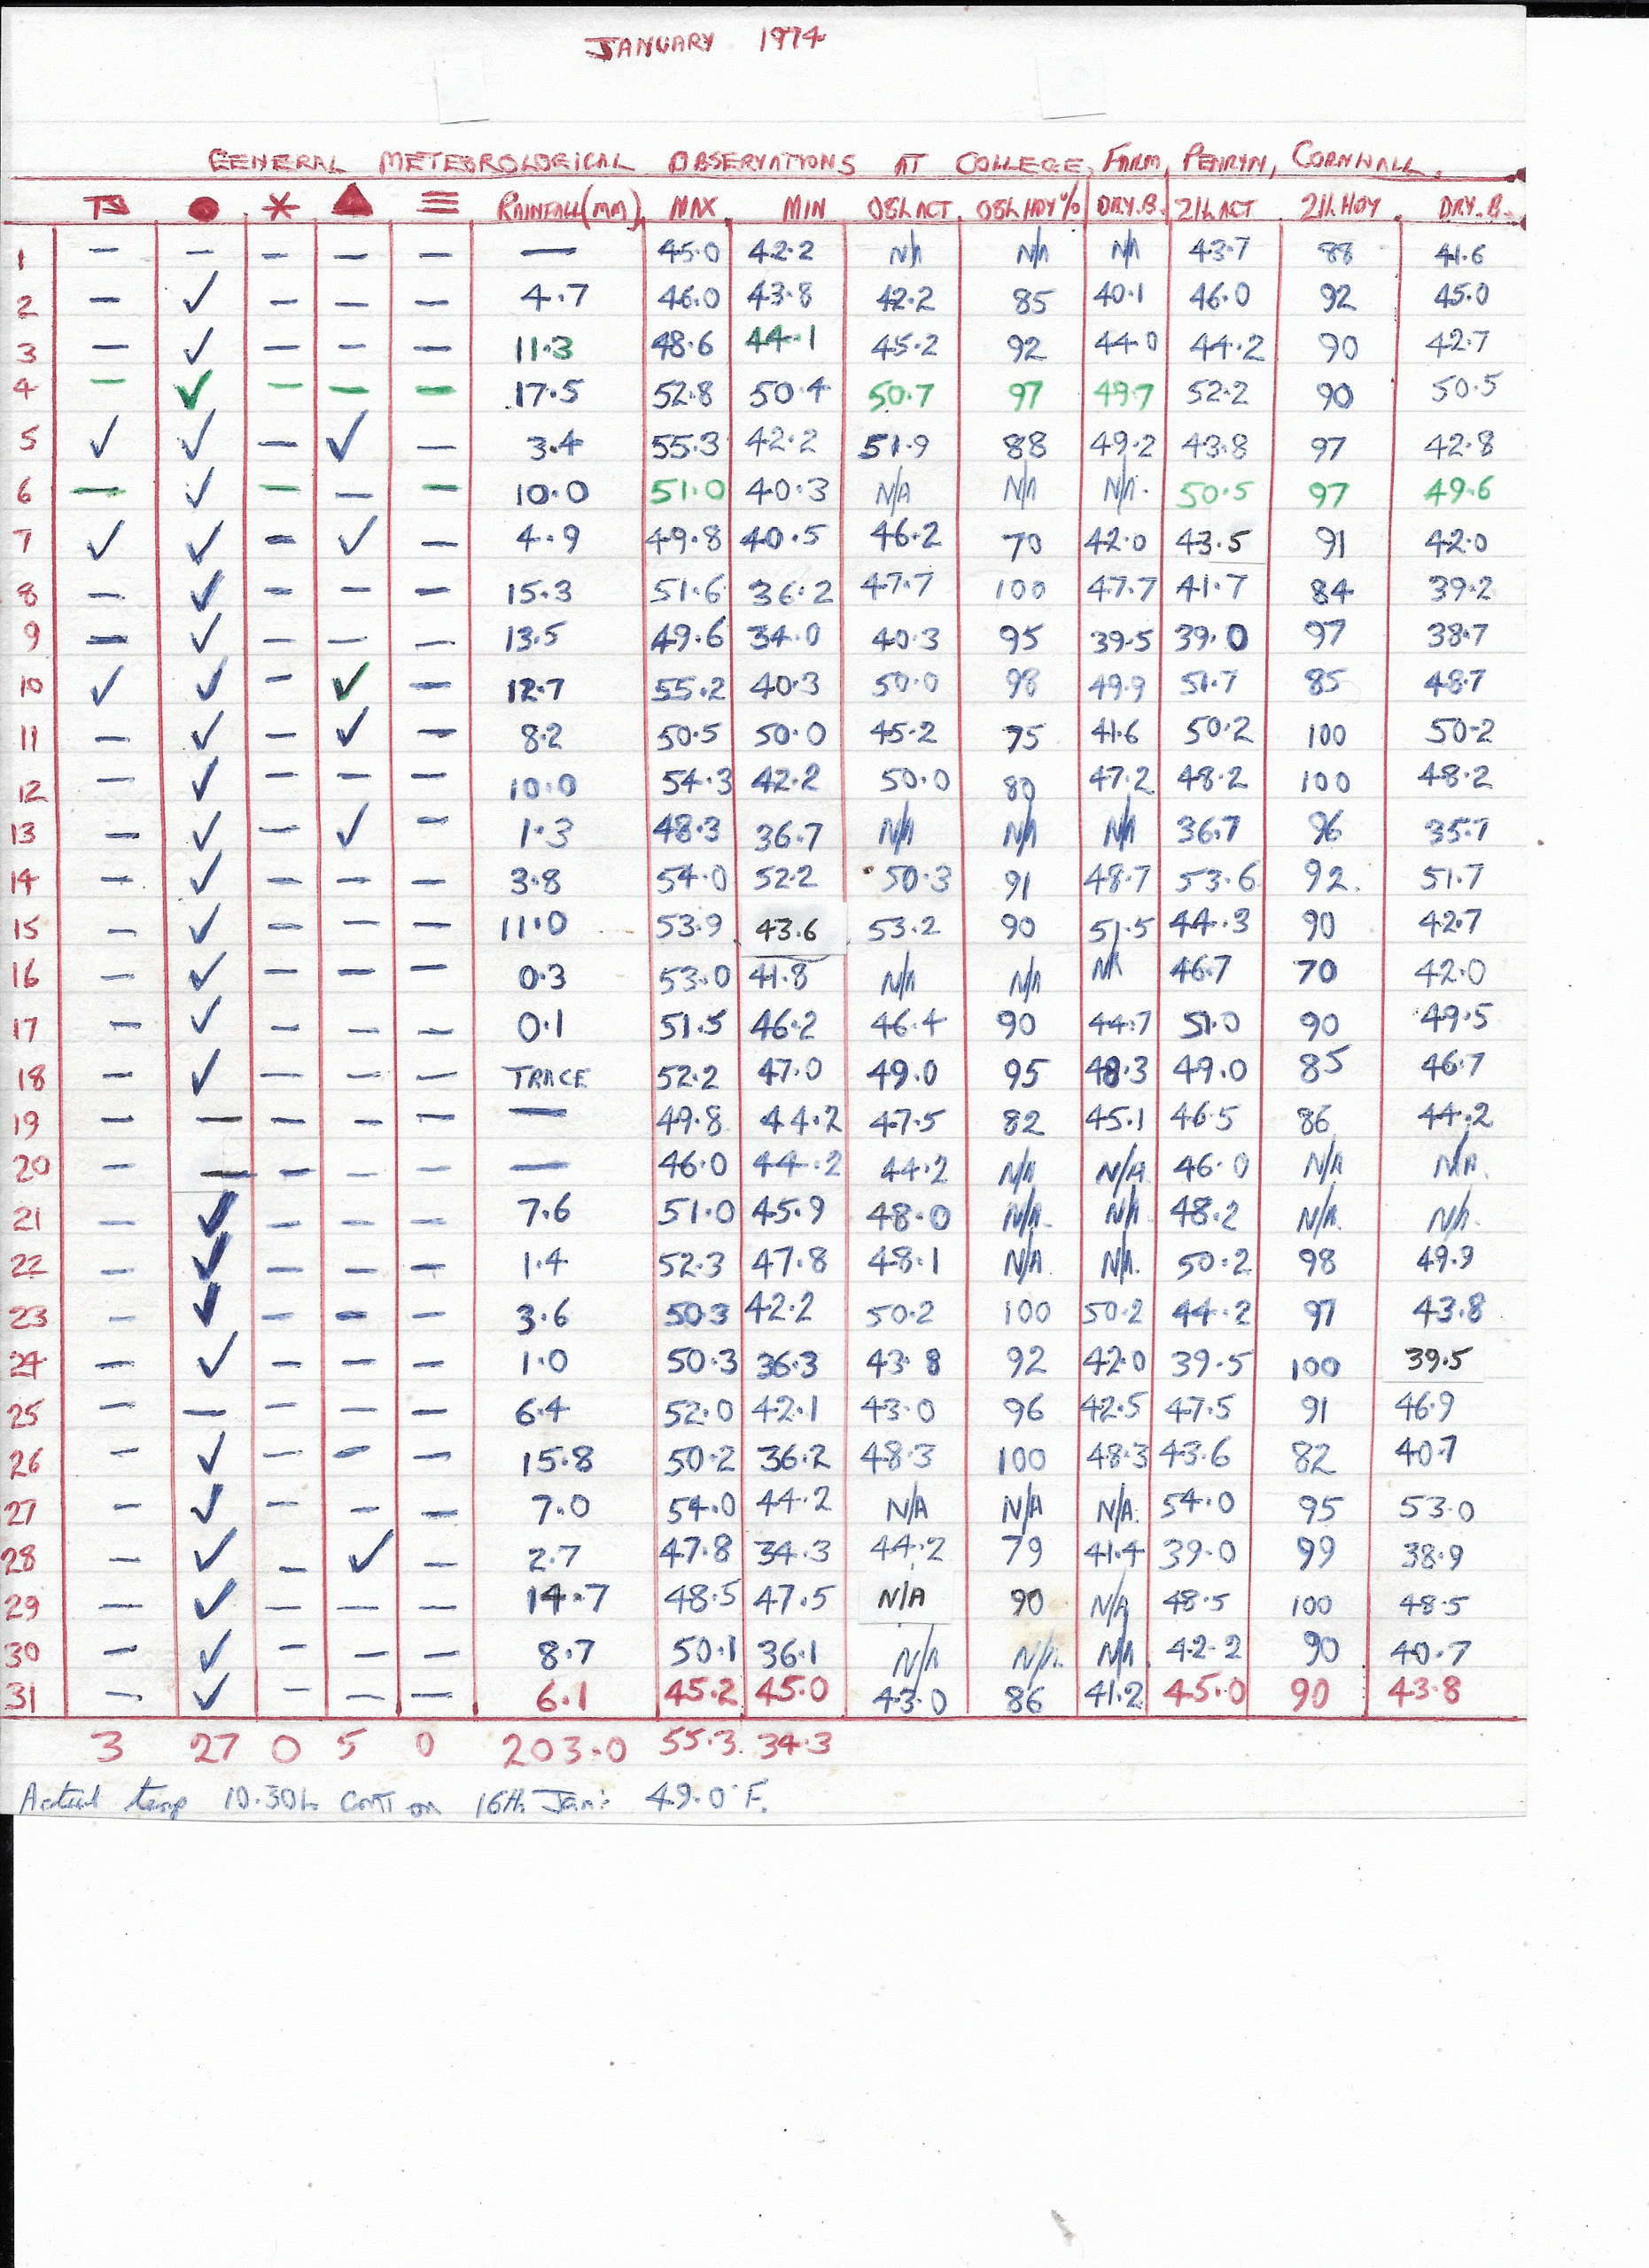 JANUARY 1974
GENERAL METEOROLOGICAL OBSERVATIONS AT COLLEGE FARM, PENRYN, CORNWALL.
● * ▲ ≡ RAINFALL(MM) MAX MIN 08h ACT 08h HDY% DRY.B. 21h ACT 21h HDY DRY.B.
1 – – – – – — 45.0 42.2 N/A N/A N/A 43.7 88 41.6
2 – ✓ – – – 4.7 46.0 43.8 42.2 85 40.1 46.0 92 45.0
3 – ✓ – – – 11.3 48.6 44.1 45.2 92 44.0 44.2 90 42.7
4 – ✓ – – – 17.5 52.8 50.4 50.7 97 49.7 52.2 90 50.5
5 ✓ ✓ – ✓ – 3.4 55.3 42.2 51.9 88 49.2 43.8 97 42.8
6 – ✓ – – – 10.0 51.0 40.3 N/A N/A N/A. 50.5 97 49.6
7 ✓ ✓ – ✓ – 4.9 49.8 40.5 46.2 70 42.0 43.5 91 42.0
8 – ✓ – – – 15.3 51.6 36.2 47.7 100 47.7 41.7 84 39.2
9 – ✓ – – – 13.5 49.6 34.0 40.3 95 39.5 39.0 97 38.7
10 ✓ ✓ – ✓ – 12.7 55.2 40.3 50.0 98 49.9 51.7 85 48.7
11 – ✓ – ✓ – 8.2 50.5 50.0 45.2 75 41.6 50.2 100 50.2
12 – ✓ – – – 10.0 54.3 42.2 50.0 80 47.2 48.2 100 48.2
13 – ✓ – ✓ – 1.3 48.3 36.7 N/A N/A N/A 36.7 96 35.7
14 – ✓ – – – 3.8 54.0 52.2 50.3 91 48.7 53.6 92. 51.7
15 – ✓ – – – 11.0 53.9 43.6 53.2 90 51.5 44.3 90 42.7
16 – ✓ – – – 0.3 53.0 41.8 N/A N/A N/A 46.7 70 42.0
17 – ✓ – – – 0.1 51.5 46.2 46.4 90 44.7 51.0 90 49.5
18 – ✓ – – – TRACE 52.2 47.0 49.0 95 48.3 49.0 85 46.7
19 – – – – – — 49.8 44.2 47.5 82 45.1 46.5 86 44.2
20 – – – – – — 46.0 44.2 44.2 N/A N/A 46.0 N/A N/A.
21 – ✓ – – – 7.6 51.0 45.9 48.0 N/A. N/A 48.2 N/A. N/A.
22 – ✓ – – – 1.4 52.3 47.8 48.1 N/A N/A. 50.2 98 49.9
23 – ✓ – – – 3.6 50.3 42.2 50.2 100 50.2 44.2 97 43.8
24 – ✓ – – – 1.0 50.3 36.3 43.8 92 42.0 39.5 100 39.5
25 – – – – – 6.4 52.0 42.1 43.0 96 42.5 47.5 91 46.9
26 – ✓ – – – 15.8 50.2 36.2 48.3 100 48.3 43.6 82 40.7
27 – ✓ – – – 7.0 54.0 44.2 N/A N/A N/A. 54.0 95 53.0
28 – ✓ – ✓ – 2.7 47.8 34.3 44.2 79 41.4 39.0 99 38.9
29 – ✓ – – – 14.7 48.5 47.5 N/A 90 N/A 48.5 100 48.5
30 – ✓ – – – 8.7 50.1 36.1 N/A N/A. N/A. 42.2 90 40.7
31 – ✓ – – – 6.1 45.2 45.0 43.0 86 41.2 45.0 90 43.8
3 27 0 5 0 203.0 55.3 34.3
Actual temp 10.30h GMT on 16th Jan: 49.0°F.